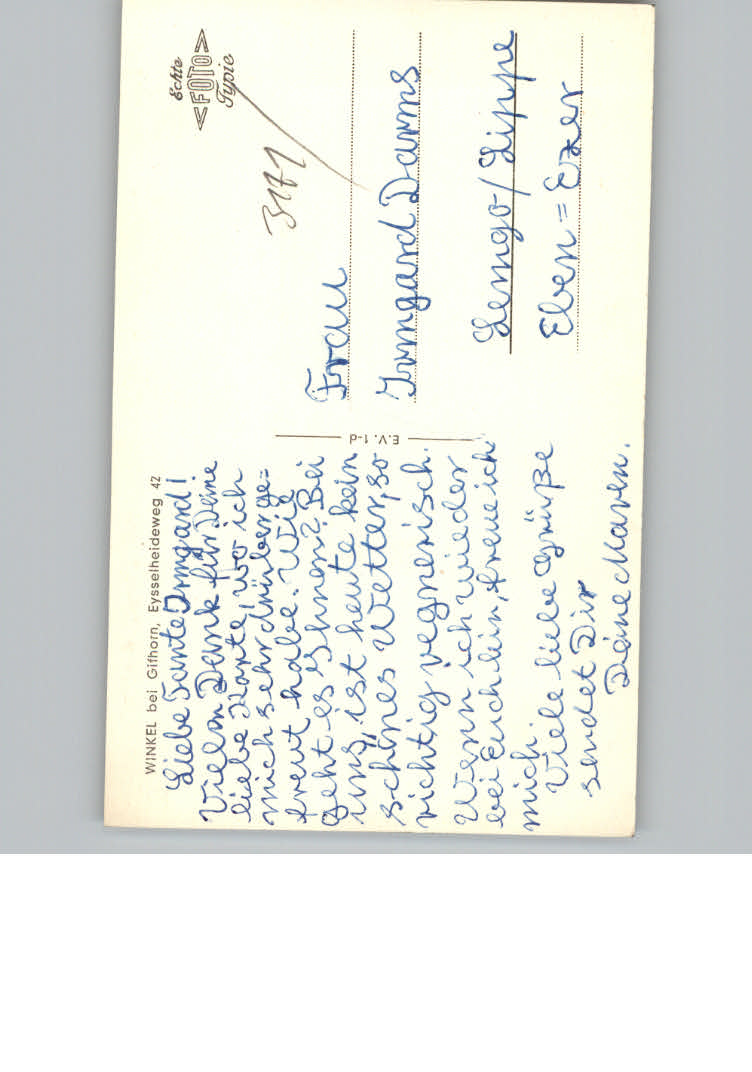 WINKEL bei Gifhorn, Eysselheideweg 42
Liebe Tante Irmgard!
Vielen Dank für Deine
liebe Karte, wo ich
mich sehr drüberge=
freut habe. Wie
geht es Ihnen? Bei
uns, ist heute kein
schönes Wetter, so
richtig regnerisch.
Wenn ich wieder
bei Euch bin, freue ich
mich.
Viele liebe Grüße
sendet Dir
Deine Maren.
E.V. 1-d
Echte
<FOTO>
Typie
3171
Frau
Irmgard Darms
Lemgo/Lippe
Eben=Ezer